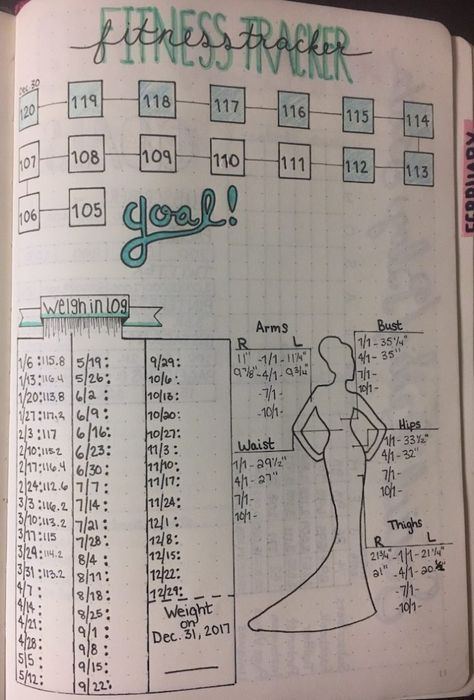 FITNESS TRACKER
fitness tracker
Dec. 30
120 119 118 117 116 115 114
107 108 109 110 111 112 113
106 105 goal!
FEBRUARY
Weigh in Log
1/6 :115.8
1/13:116.4
1/20:113.8
1/27:117.2
2/3 :117
2/10:115.2
2/17:116.4
2/24:112.6
3/3 :116.2
3/10:113.2
3/17:115
3/24:114.2
3/31:113.2
4/7 :
4/14:
4/21:
4/28:
5/5 :
5/12:
5/19:
5/26:
6/2 :
6/9 :
6/16:
6/23:
6/30:
7/7 :
7/14:
7/21:
7/28:
8/4 :
8/11:
8/18:
8/25:
9/1 :
9/8 :
9/15:
9/22:
9/29:
10/6:
10/13:
10/20:
10/27:
11/3 :
11/10:
11/17:
11/24:
12/1 :
12/8:
12/15:
12/22:
12/29:
Weight
on
Dec. 31, 2017
Arms
R L
11" -1/1- 11 1/4"
9 7/8" -4/1- 9 3/4"
-7/1-
-10/1-
Bust
1/1 - 35 1/4"
4/1 - 35"
7/1-
10/1-
Waist
1/1 - 29 1/2"
4/1 - 27"
7/1-
10/1-
Hips
1/1 - 33 1/2"
4/1 - 32"
7/1-
10/1-
Thighs
R L
21 3/4" -1/1- 21 1/4"
21" -4/1- 20
-7/1-
-10/1-